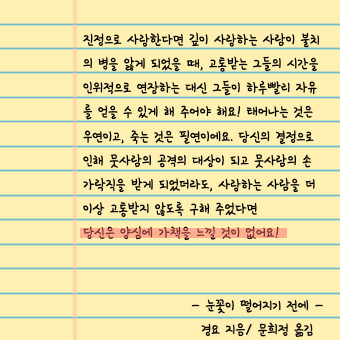 진정으로 사랑한다면 깊이 사랑하는 사람이 불치
의 병을 앓게 되었을 때, 고통받는 그들의 시간을
인위적으로 연장하는 대신 그들이 하루빨리 자유
를 얻을 수 있게 해 주어야 해요! 태어나는 것은
우연이고, 죽는 것은 필연이에요. 당신의 결정으로
인해 뭇사람의 공격의 대상이 되고 뭇사람의 손
가락직을 받게 되었더라도, 사랑하는 사람을 더
이상 고통받지 않도록 구해 주었다면
당신은 양심에 가책을 느낄 것이 없어요!
- 눈꽃이 떨어지기 전에 -
경요 지음/ 문희정 옮김